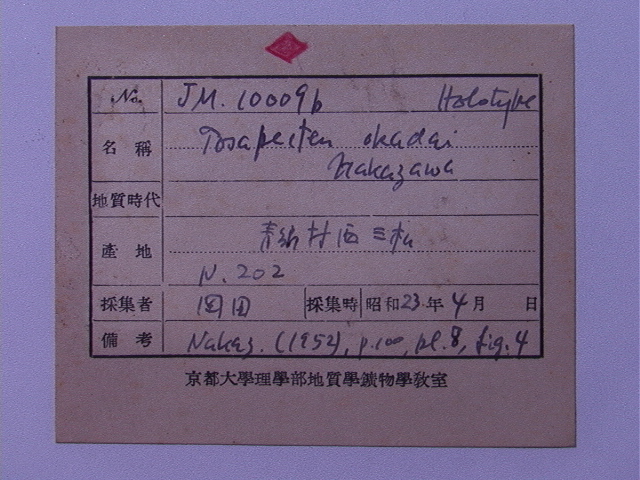 No. JM. 10009b Holotype
名稱 okadai
Nakazawa
地質時代
產地 村西
N. 202
採集者 岡田 採集時 昭和23年4月 日
備考 Nakaz. (1952), p.100, pl.8, fig.4
京都大學理學部地質學鑛物學教室